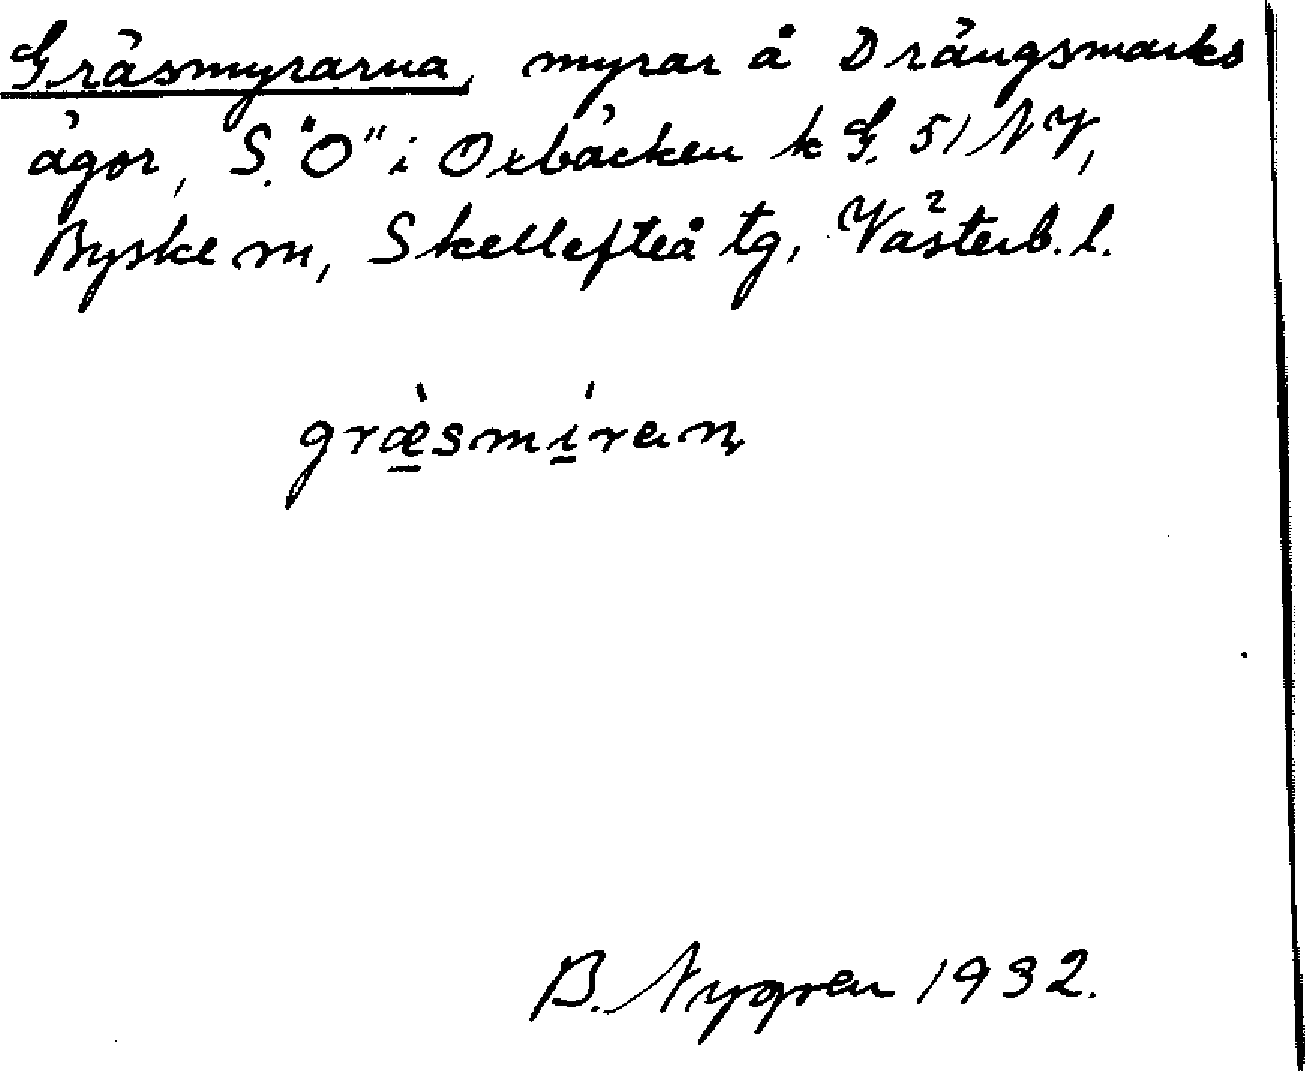 Gräsmyrarna, myrar å Drängsmarks
ägor, S. "O" i Oxbäcken k G. 51 NV,
Byske sn, Skellefteå tg, Västerb. l.
græ̀smíran
B. Nygren 1932.